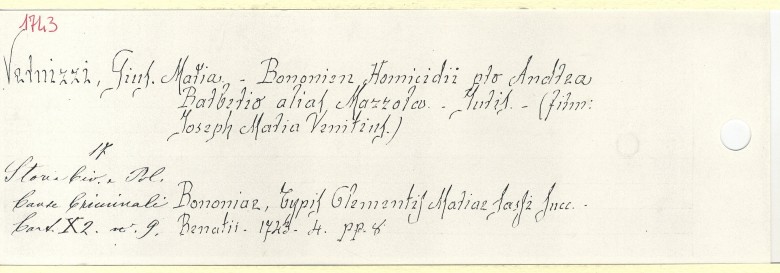 1743
Vernizzi, Gius. Maria - Bononien Homicidii pro Andrea
Barberio alias Mazzola - Juris. - (firm:
Joseph Maria Vernitius.)
17
Stor. Civ. e Pol.
Cause Criminali Bononiae, Typis Clementis Mariae Sassi Succ. -
Cart. X2. n. 9. Benatii - 1743 - 4. pp. 8